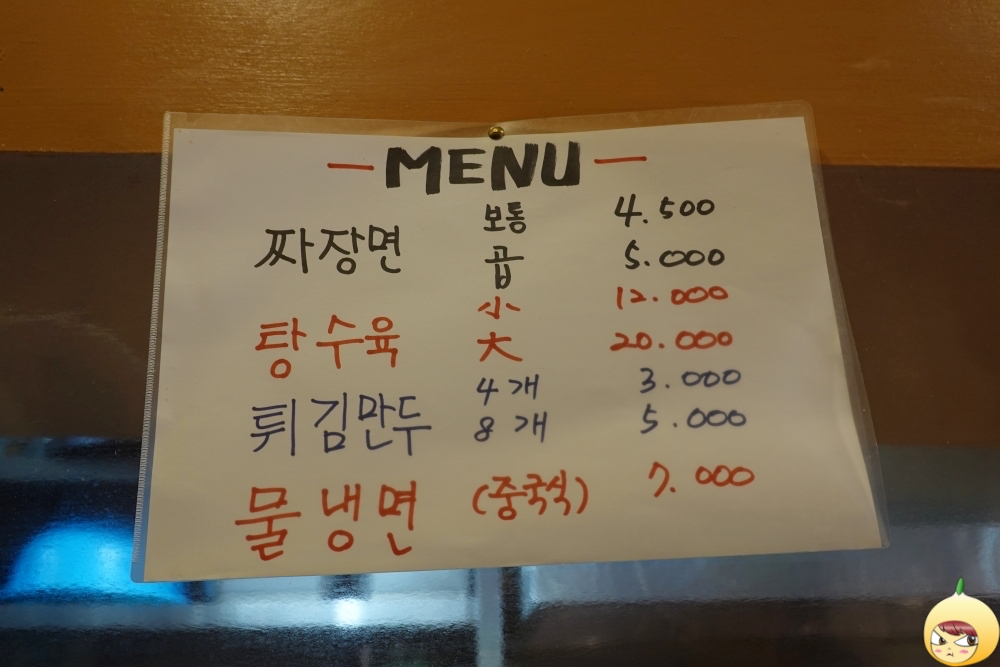 - MENU -
짜장면 보통 4.500
곱 5.000
탕수육 小 12.000
大 20.000
튀김만두 4개 3.000
8개 5.000
물냉면 (중국식) 7.000